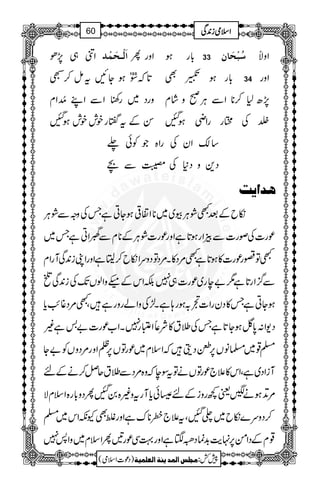 60 اسلامی زندگی
اولاً سُبْحَان 33 بار ہو اور پھر اَلْـحَمْد یہی اتنی پڑھو
اور 34 بار ہو تکبیر بھی تاکہ سَو ہو جائیں یہ مل کر سبھی
پڑھ لیا کرنا اسے ہر صبح و شام ورد میں رکھنا اسے اپنے مُدام
خلد کی مختار راضی ہو گئیں سن کے یہ گفتار خوش خوش ہو گئیں
سالک ان کی راہ جو کوئی چلے
دین و دنیا کی مصیبت سے بچے
ھدایت
نکاح کے بعد کبھی شوہر بیوی میں نااتفاقی ہوجاتی ہے جس کی وجہ سے شوہر
عورت کی صورت سے بیزار ہوتا ہے اور عورت شوہر کے نام سے گھبراتی ہے جس میں
کبھی تو قصور عورت کا ہوتا ہے کبھی مرد کا۔ مرد تو دوسرا نکاح کرلیتا ہے اور اپنی زندگی آرام
سے گزارتا ہے مگر بے چاری عورت کی زندگی ہی نہیں بلکہ اس کے میکے والوں تک کی زندگی تلخ
ہوجاتی ہے جس کا دن رات تجربہ ہورہا ہے۔ لڑکی والے رو رہے ہیں، کبھی مرد غائب یا
دیوانہ یا پاگل ہوجاتا ہے جس کی طلاق کا شرعاً اعتبار نہیں۔ اب عورت بے بس ہے غیر
مسلم قومیں مسلمانوں پر طعن دیتی ہیں کہ اسلام میں عورتوں پر ظلم اور مردوں کو بے جا
آزادی ہے، اس کا علاج عورتوں نے تو یہ سوچا کہ وہ مرد سے طلاق حاصل کرنے کے لئے
مرتد ہونے لگیں یعنی کچھ روز کے لئے عیسائی یا آریہ وغیرہ بن گئیں پھر دوبارہ اسلام لا
کر دوسرے نکاح میں چلی گئیں، یہ علاج خطرناک ہے اور غلط بھی کیونکہ اس میں مسلم
قوم کے دامن پر نہایت بدنما دھبہ لگتا ہے اور بہت سی عورتیں پھر اسلام میں واپس نہیں
پیش کش: مجلس المدینۃ العلمیۃ (دعوت اسلامی)